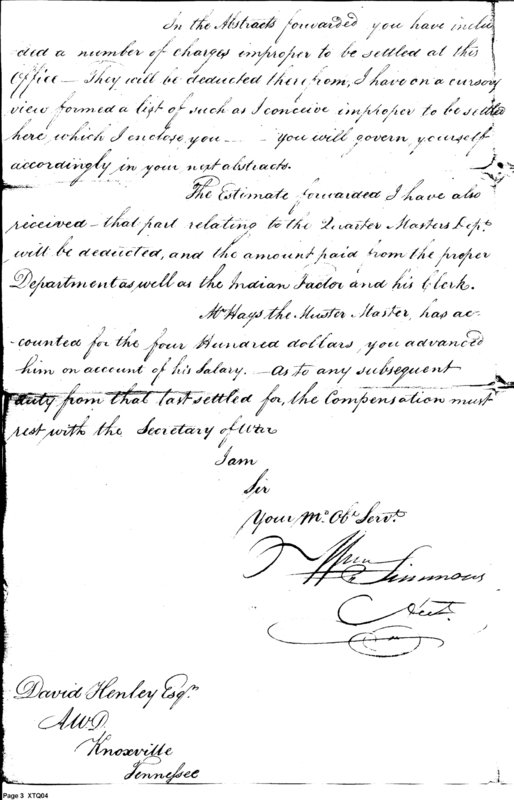 In the Abstracts forwarded you have inclu
-ded a number of charges improper to be settled at this
Office — They will be deducted therefrom, I have on a cursory
view formed a list of such as I conceive improper to be settled
here which I enclose you — — you will govern yourself
accordingly in your next abstracts.
The Estimate forwarded I have also
received — that part relating to the Quarter Masters Dept.
will be deducted, and the amount paid from the proper
Department as well as the Indian Factor and his Clerk.
Mr Hays the Muster Master, has ac-
counted for the four Hundred dollars, you advanced
him on account of his Salary. — as to any subsequent
duty from that last settled for, the Compensation must
rest with the Secretary of War
I am
Sir
Your Mo. Ob. Servt.
Wm Simmons
Acct.
David Henley Esqr.
AWD.
Knoxville
Tennessee
Page 3 XTQ04